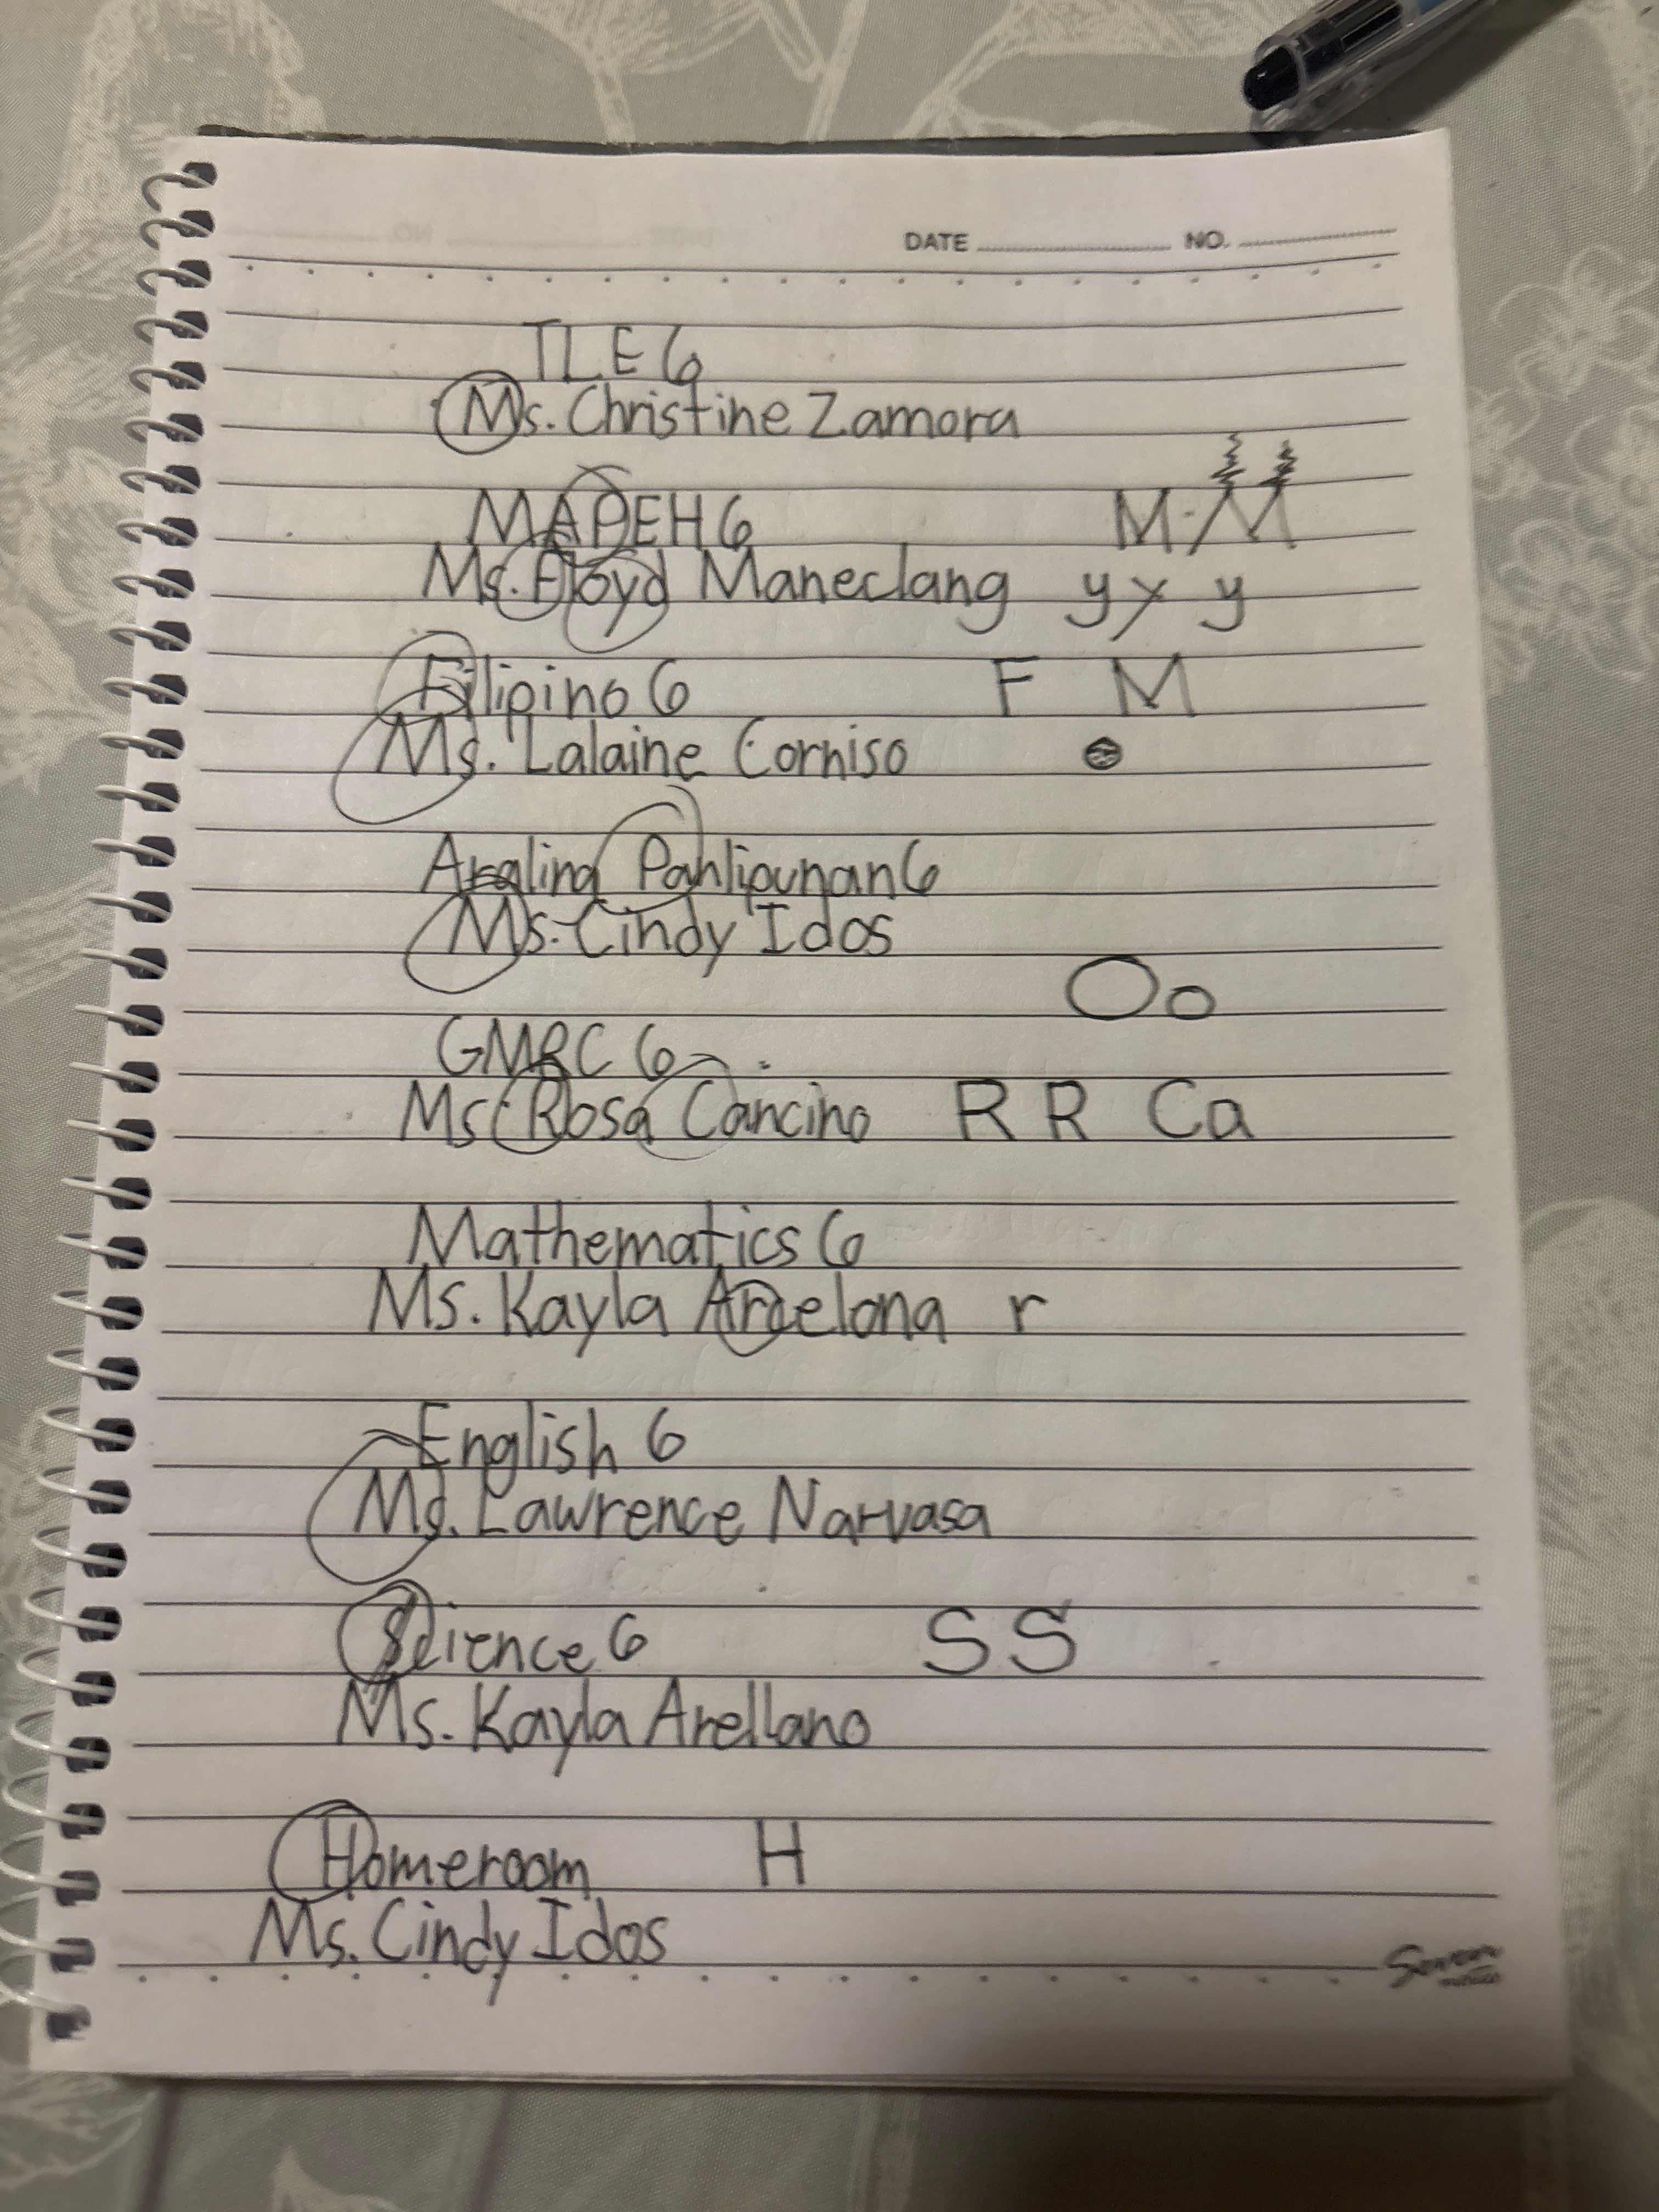 DATE NO.
TLE 6
Ms. Christine Zamora
MAPEH 6 M M
Ms. Floyd Maneclang y y y
Filipino 6 F M
Ms. Lalaine Corniso
Araling Panlipunan 6
Ms. Cindy Idos
O o
GMRC 6
Ms. Rosa Cancino R R Ca
Mathematics 6
Ms. Kayla Arcelona r
English 6
Ms. Lawrence Narvasa
Science 6 S S
Ms. Kayla Arellano
Homeroom H
Ms. Cindy Idos
Seven